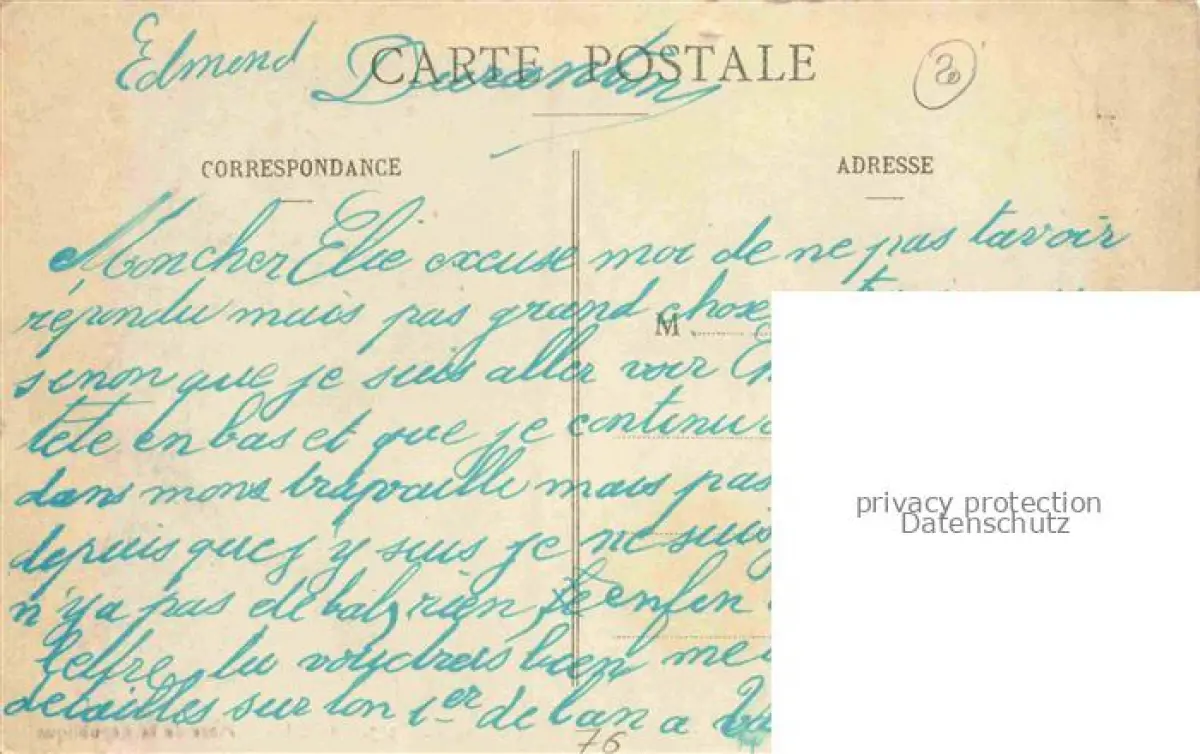 Edmond
CARTE POSTALE
CORRESPONDANCE
ADRESSE
Mon cher Elie excuse moi de ne pas tavoir
répondu mais pas grand chose
M
sinon que je suis aller voir
tête en bas et que je continu
dans mons trapvaille mais pas
depuis que j y suis je ne suis
n'ya pas de bal, rien, enfin
lettre tu voudras bien me
détailles sur ton 1er de lan a
privacy protection
Datenschutz
76